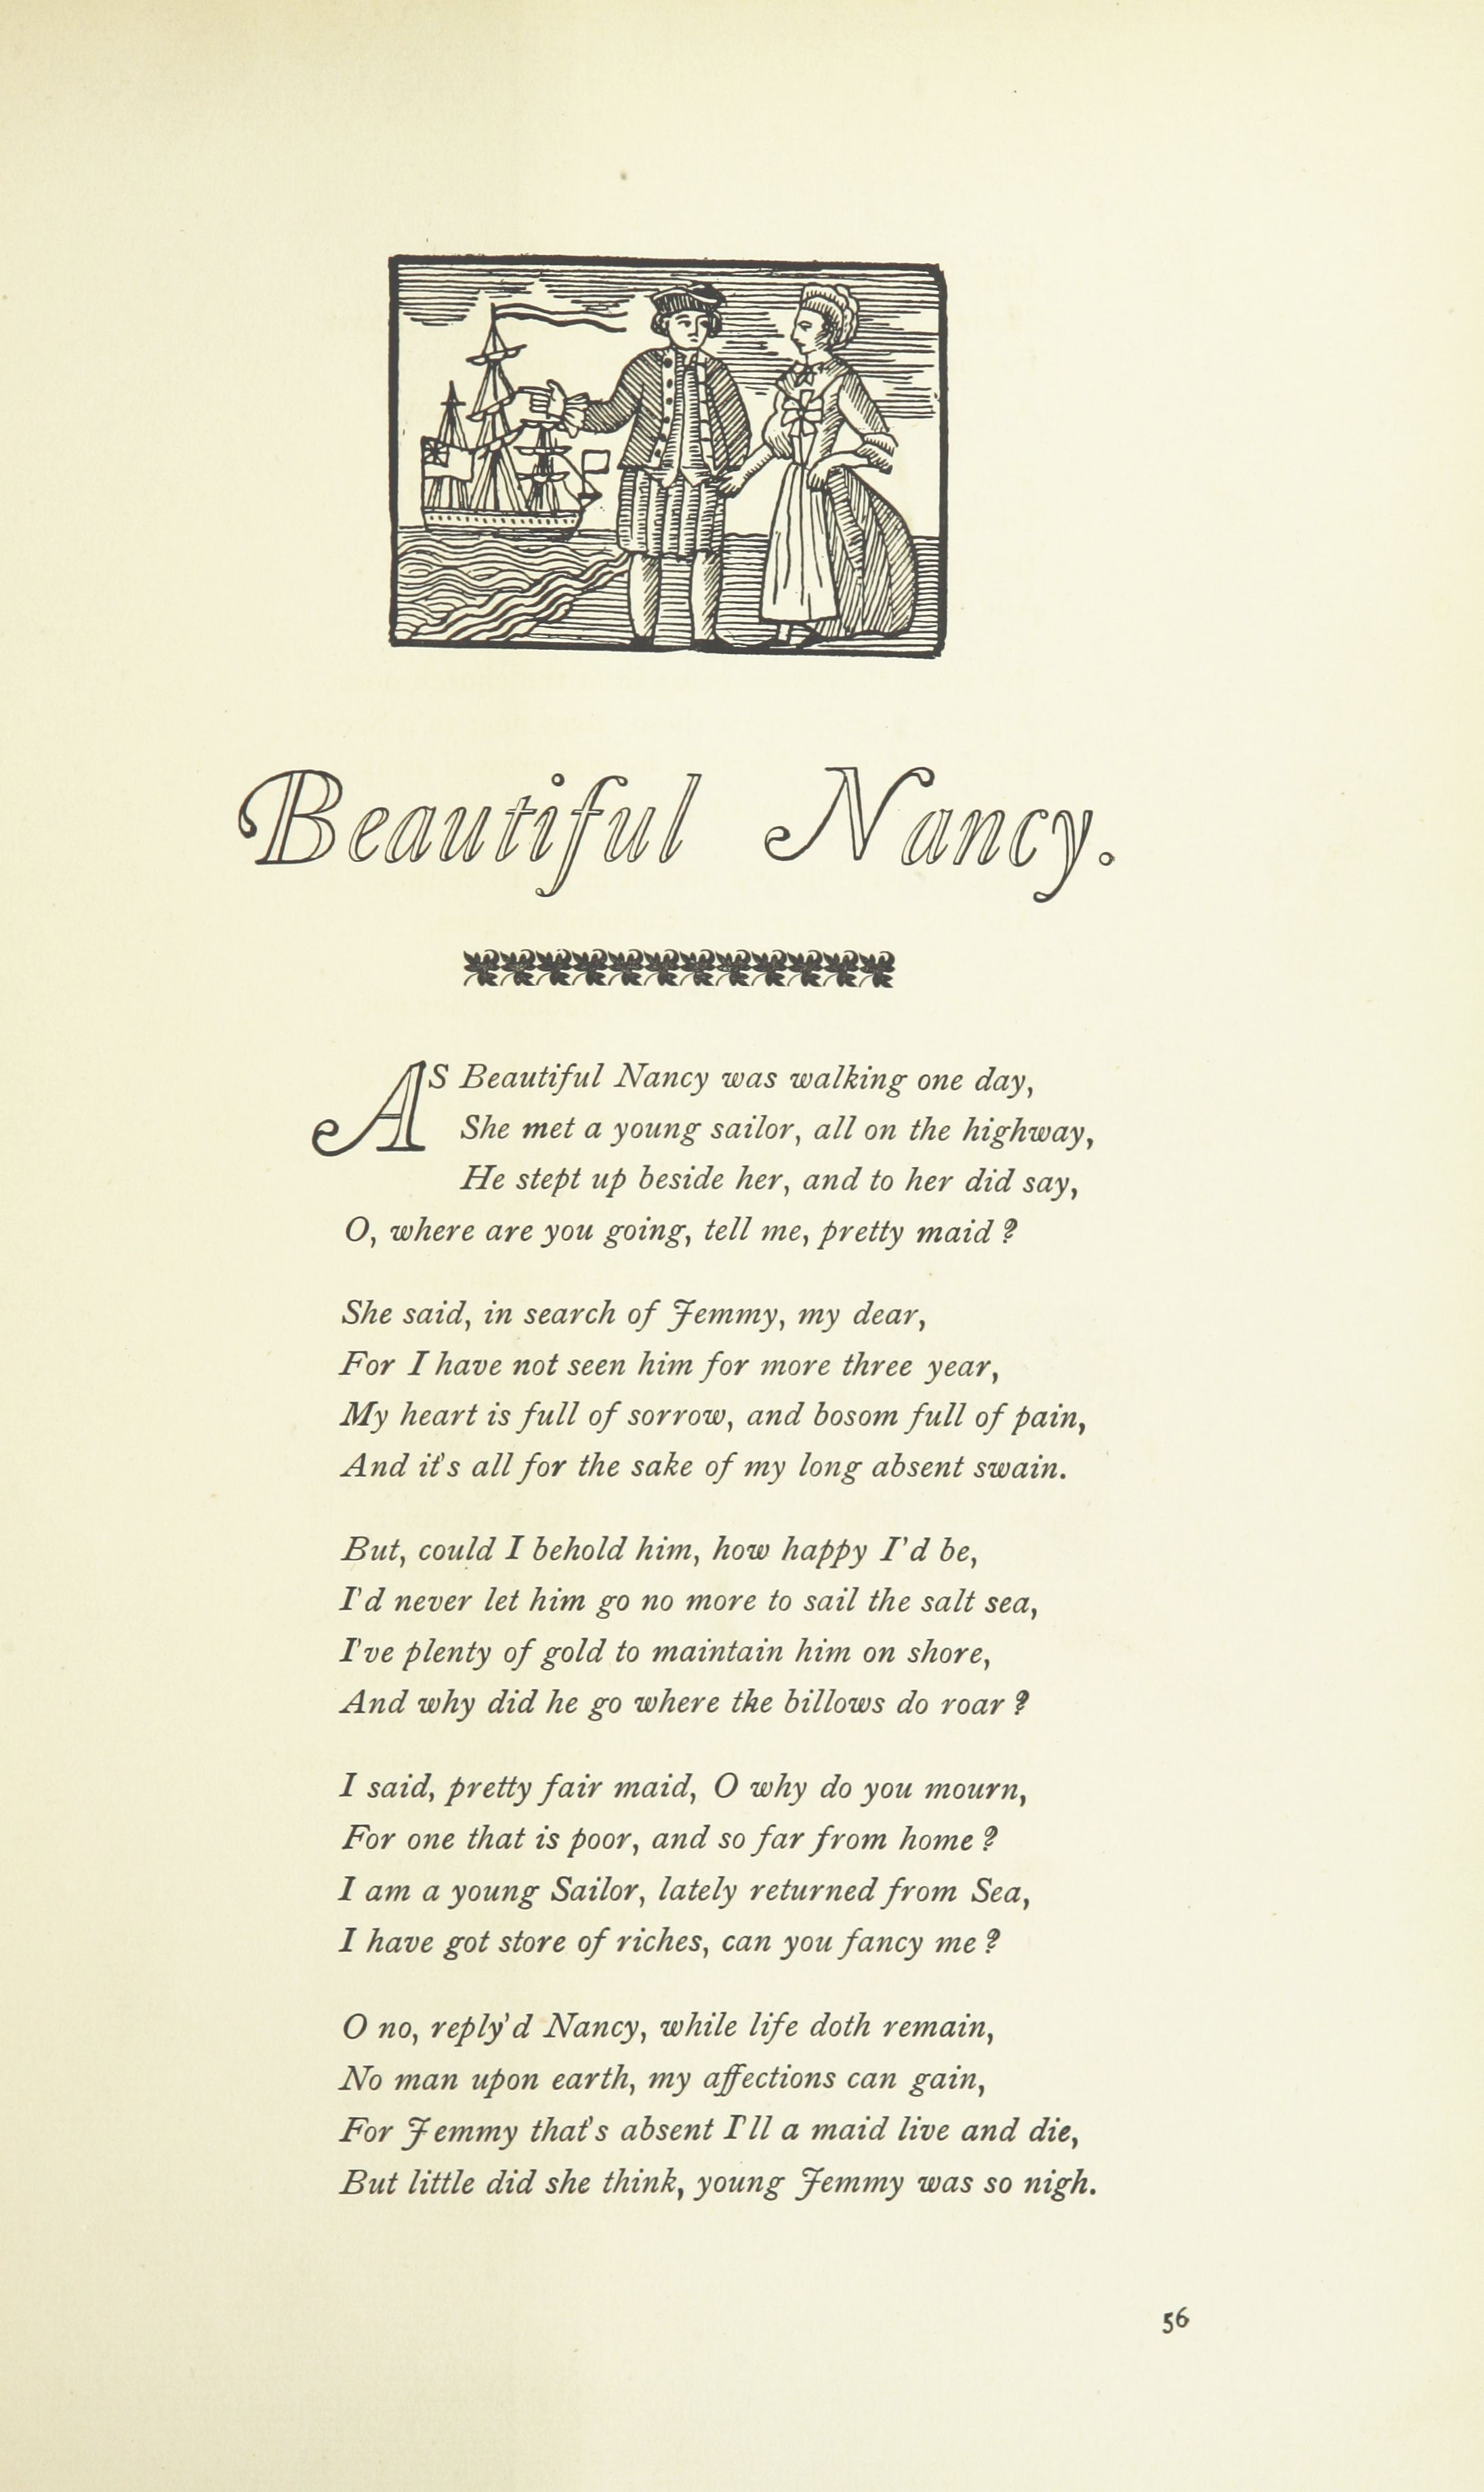 Beautiful Nancy.
AS Beautiful Nancy was walking one day,
She met a young sailor, all on the highway,
He stept up beside her, and to her did say,
O, where are you going, tell me, pretty maid ?
She said, in search of Jemmy, my dear,
For I have not seen him for more three year,
My heart is full of sorrow, and bosom full of pain,
And it's all for the sake of my long absent swain.
But, could I behold him, how happy I'd be,
I'd never let him go no more to sail the salt sea,
I've plenty of gold to maintain him on shore,
And why did he go where the billows do roar ?
I said, pretty fair maid, O why do you mourn,
For one that is poor, and so far from home ?
I am a young Sailor, lately returned from Sea,
I have got store of riches, can you fancy me ?
O no, reply'd Nancy, while life doth remain,
No man upon earth, my affections can gain,
For Jemmy that's absent I'll a maid live and die,
But little did she think, young Jemmy was so nigh.
56